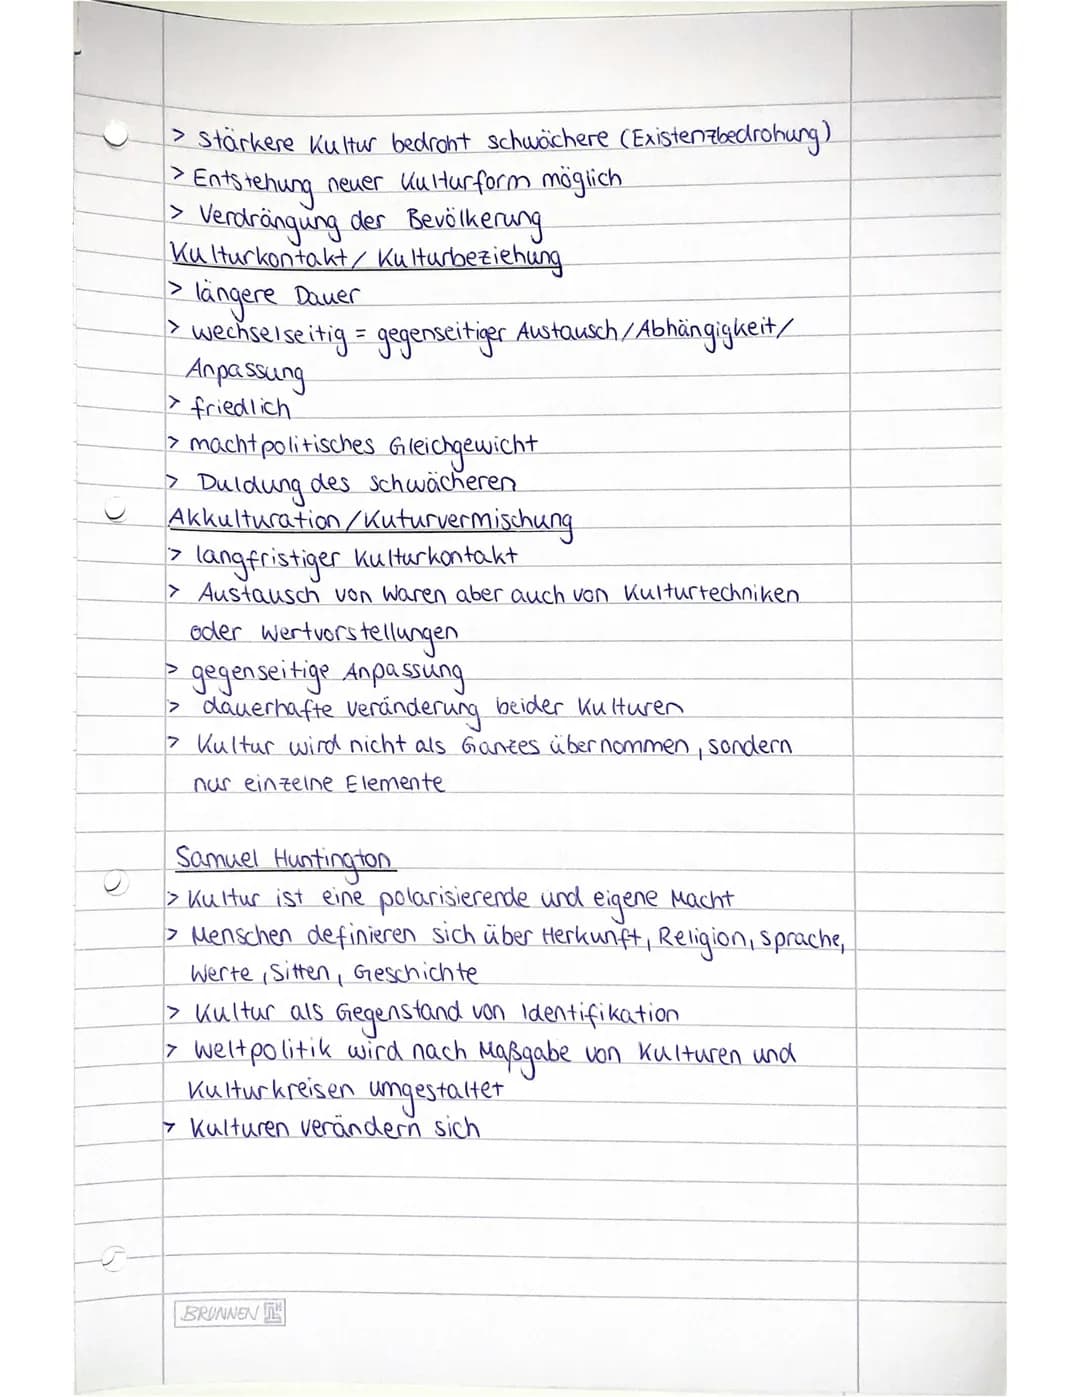 > Stärkere Kultur bedroht schwächere (Existenzbedrohung)
> Entstehung neuer Kulturform möglich
> Verdrängung der Bevölkerung
Kulturkontakt/ Kulturbeziehung
> längere Dauer
> wechselseitig = gegenseitiger Austausch/Abhängigkeit/
Anpassung
> friedlich
> machtpolitisches Gleichgewicht
> Duldung des Schwächeren
Akkulturation/Kuturvermischung
> langfristiger Kulturkontakt
> Austausch von Waren aber auch von Kulturtechniken
oder Wertvorstellungen
> gegenseitige Anpassung
> dauerhafte Veränderung beider Kulturen
> Kultur wird nicht als Ganzes übernommen, sondern
nur einzelne Elemente
Samuel Huntington
> Kultur ist eine polarisierende und eigene Macht
> Menschen definieren sich über Herkunft, Religion, Sprache,
Werte, Sitten, Geschichte
> Kultur als Gegenstand von Identifikation
> Weltpolitik wird nach Maßgabe von Kulturen und
Kulturkreisen umgestaltet
> Kulturen verändern sich
BRUNNEN